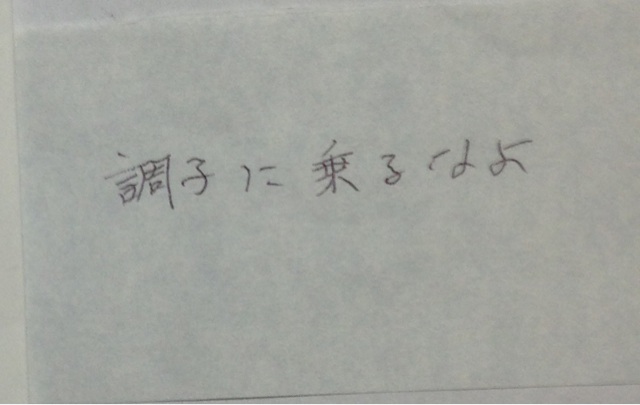 調子に乗るなよ